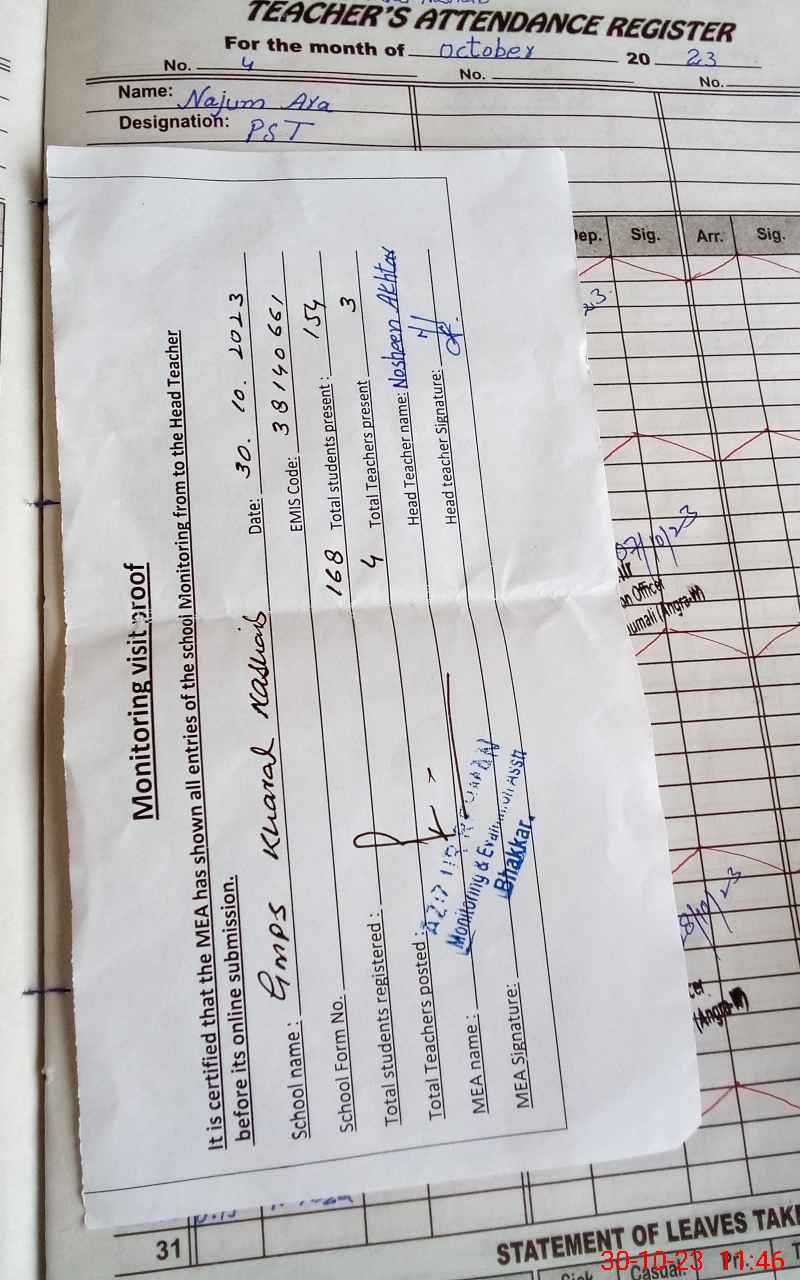 TEACHER'S ATTENDANCE REGISTER
For the month of October 2023
No. 4 No. No.
Name: Najum Ara
Designation: PST
Dep. Sig. Arr. Sig.
Monitoring visit proof
It is certified that the MEA has shown all entries of the school Monitoring from to the Head Teacher
before its online submission.
Date: 30.10.2023
School name: GMPS Kharal Nashaib EMIS Code: 38140661
School Form No.
Total students registered: 168 Total students present: 154
Total Teachers posted: 4 Total Teachers present 3
MEA name: Head Teacher name: Nosheen Akhtar
MEA Signature: Head teacher Signature:
Monitoring & Evaluation Asstt
Bhakkar.
07/10/23
on Officer
umali (Angra-M)
(Angra-M)
31
STATEMENT OF LEAVES TAKE
Casual Pri.
30-10-23 11:46